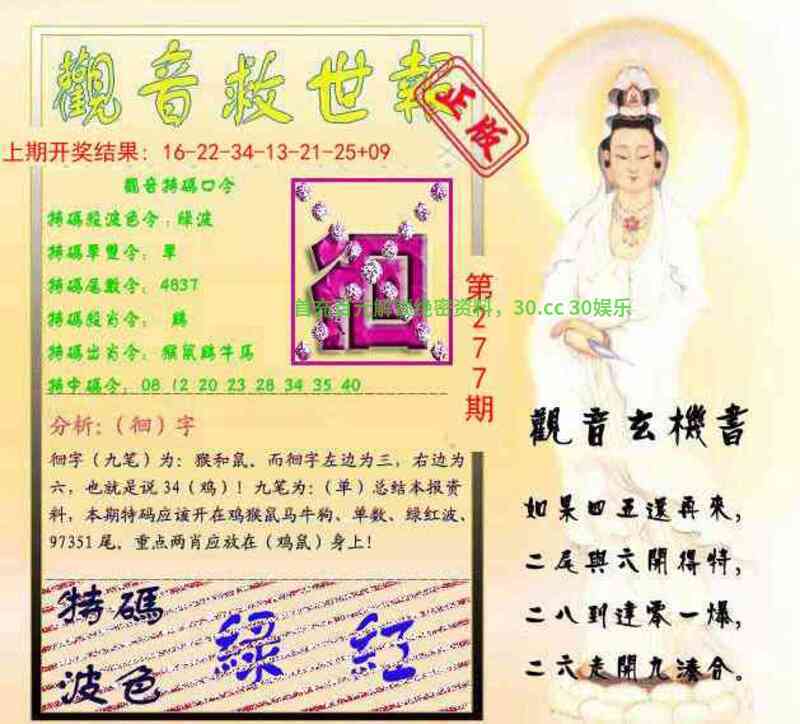 觀音救世報
正版
上期开奖结果：16-22-34-13-21-25+09
觀音特碼口令
特碼殺波色令：綠波
特碼單雙令：單
特碼尾數令：4837
特碼殺肖令：鷄
特碼出肖令：猴鼠鷄牛馬
特中碼令：08 12 20 23 28 34 35 40
徊
第277期
30.cc 30娱乐
分析：（徊）字
徊字（九笔）为：猴和鼠。而徊字左边为三，右边为
六，也就是说34（鸡）！九笔为：（单）总结本报资
料，本期特码应该开在鸡猴鼠马牛狗、单数、绿红波、
97351尾。重点两肖应放在（鸡鼠）身上！
特碼
波色
綠 紅
觀音玄機書
如果四五還再來，
二尾與六開得特，
二八到達零一爆，
二六走開九湊合。